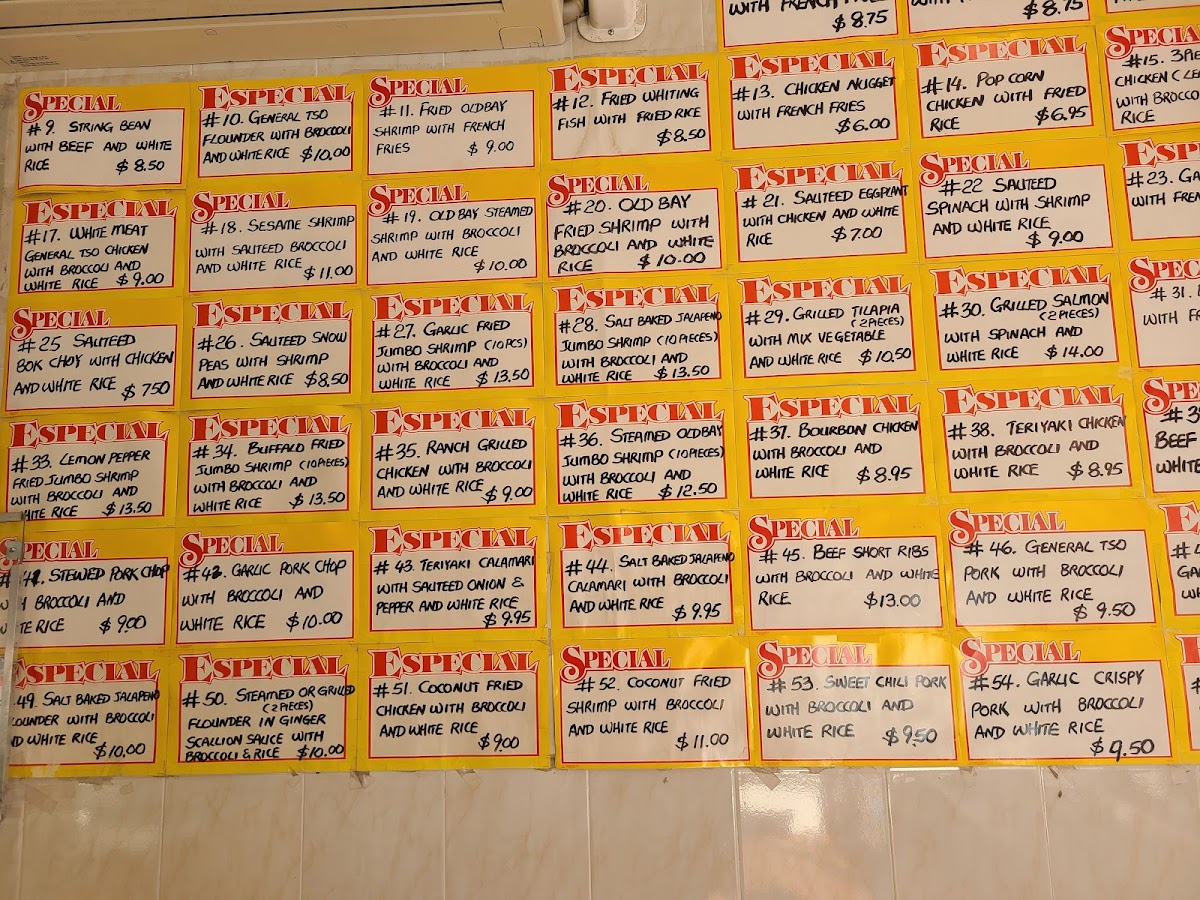 WITH FRENCH
$8.75
$8.75
SPECIAL
#9. STRING BEAN
WITH BEEF AND WHITE
RICE $8.50
ESPECIAL
#10. GENERAL TSO
FLOUNDER WITH BROCCOLI
AND WHITE RICE $10.00
SPECIAL
#11. FRIED OLDBAY
SHRIMP WITH FRENCH
FRIES $9.00
ESPECIAL
#12. FRIED WHITING
FISH WITH FRIED RICE
$8.50
ESPECIAL
#13. CHICKEN NUGGET
WITH FRENCH FRIES
$6.00
ESPECIAL
#14. POP CORN
CHICKEN WITH FRIED
RICE $6.95
SPECIAL
#15. 3PIE
CHICKEN (LE
WITH BROCCO
RICE
ESPECIAL
#17. WHITE MEAT
GENERAL TSO CHICKEN
WITH BROCCOLI AND
WHITE RICE $9.00
SPECIAL
#18. SESAME SHRIMP
WITH SAUTEED BROCCOLI
AND WHITE RICE $11.00
SPECIAL
#19. OLD BAY STEAMED
SHRIMP WITH BROCCOLI
AND WHITE RICE
$10.00
SPECIAL
#20. OLD BAY
FRIED SHRIMP WITH
BROCCOLI AND WHITE
RICE $10.00
ESPECIAL
#21. SAUTEED EGGPLANT
WITH CHICKEN AND WHITE
RICE $7.00
SPECIAL
#22 SAUTEED
SPINACH WITH SHRIMP
AND WHITE RICE
$9.00
ESP
#23. GA
WITH FREN
SPECIAL
#25 SAUTEED
BOK CHOY WITH CHICKEN
AND WHITE RICE $750
ESPECIAL
#26. SAUTEED SNOW
PEAS WITH SHRIMP
AND WHITE RICE $8.50
ESPECIAL
#27. GARLIC FRIED
JUMBO SHRIMP (10PCS)
WITH BROCCOLI AND
WHITE RICE $13.50
ESPECIAL
#28. SALT BAKED JALAPENO
JUMBO SHRIMP (10 PIECES)
WITH BROCCOLI AND
WHITE RICE $13.50
ESPECIAL
#29. GRILLED TILAPIA
(2 PIECES)
WITH MIX VEGETABLE
AND WHITE RICE $10.50
ESPECIAL
#30. GRILLED SALMON
(2 PIECES)
WITH SPINACH AND
WHITE RICE $14.00
SPEC
#31.
WITH FR
ESPECIAL
#33. LEMON PEPPER
FRIED JUMBO SHRIMP
WITH BROCCOLI AND
WHITE RICE $13.50
ESPECIAL
#34. BUFFALO FRIED
JUMBO SHRIMP (10 PIECES)
WITH BROCCOLI AND
WHITE RICE $13.50
ESPECIAL
#35. RANCH GRILLED
CHICKEN WITH BROCCOLI
AND WHITE RICE $9.00
ESPECIAL
#36. STEAMED OLDBAY
JUMBO SHRIMP (10 PIECES)
WITH BROCCOLI AND
WHITE RICE $12.50
ESPECIAL
#37. BOURBON CHICKEN
WITH BROCCOLI AND
WHITE RICE $8.95
ESPECIAL
#38. TERIYAKI CHICKEN
WITH BROCCOLI AND
WHITE RICE $8.95
SP
BEEF
WHITE
SPECIAL
STEWED PORK CHOP
BROCCOLI AND
TE RICE $9.00
SPECIAL
GARLIC PORK CHOP
WITH BROCCOLI AND
WHITE RICE $10.00
ESPECIAL
#43. TERIYAKI CALAMARI
WITH SAUTEED ONION &
PEPPER AND WHITE RICE
$9.95
ESPECIAL
#44. SALT BAKED JALAPENO
CALAMARI WITH BROCCOLI
AND WHITE RICE
$9.95
SPECIAL
#45. BEEF SHORT RIBS
WITH BROCCOLI AND WHITE
RICE $13.00
SPECIAL
#46. GENERAL TSO
PORK WITH BROCCOLI
AND WHITE RICE
$9.50
ESPECIAL
49. SALT BAKED JALAPENO
LOUNDER WITH BROCCOLI
ND WHITE RICE
$10.00
ESPECIAL
#50. STEAMED OR GRILLED
(2 PIECES)
FLOUNDER IN GINGER
SCALLION SAUCE WITH
BROCCOLI & RICE $10.00
ESPECIAL
#51. COCONUT FRIED
CHICKEN WITH BROCCOLI
AND WHITE RICE
$9.00
SPECIAL
#52. COCONUT FRIED
SHRIMP WITH BROCCOLI
AND WHITE RICE
$11.00
SPECIAL
#53. SWEET CHILI PORK
WITH BROCCOLI AND
WHITE RICE $9.50
SPECIAL
#54. GARLIC CRISPY
PORK WITH BROCCOLI
AND WHITE RICE
$9.50